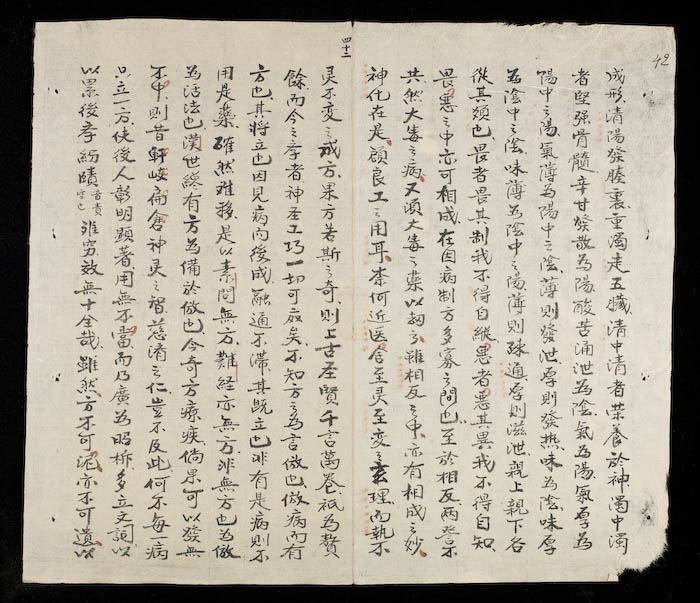 42
四十二
成形清陽發腠裏重濁走五臟清中清者荣養於神濁中濁
者堅强骨髓辛甘發散為陽酸苦涌泄為陰氣為陽氣厚為
陽中之陽氣薄為陽中之陰薄則發泄厚則發热味為陰味厚
為陰中之陰味薄為陰中之陽薄則疎通厚則滋泄親上親下各
從其類也畏者畏其制我不得自縱惡者惡其異我不得自知
畏惡之中亦可相成在因病制方多寡之間也至於相反兩讐不
共然大毒之病又須大毒之藥以劫之雖相反之中亦有相成之妙
神化在是顧良工之用耳柰何近医舎至灵至变之玄理而執不
灵不变之成方果方若斯之奇則上古圣賢千言萬卷祇為贅
餘而今之孝者神圣工巧一切可廢矣不知方之為言倣也倣病而有
方也其將立也因見病内後成融通不滞其既立也非有是病則不
用是藥確然难移是以素問無方難経亦無方非無方也为倣
為活法也漢世緫有方為備於倣也今奇方療疾倘果可以發無
不中則昔軒岐扁倉神灵之智慈済之仁豈不及此何不每一病
只立一方使後人彰明顕著用無不當而乃廣為昭析多立文詞以
以累後孝紛賾音責也谁穷效無十全哉雖然方不可泥亦不可遺以